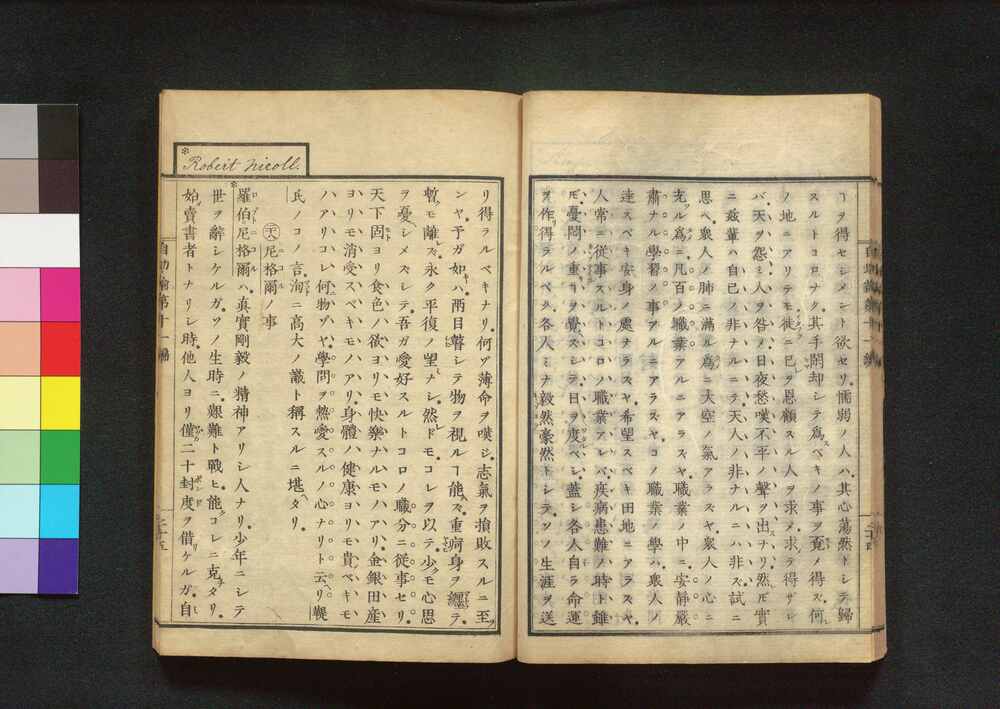 ヿヲ得セシメント欲セリ懦弱ノ人ハ其心蕩然トシテ歸
スルトコロナク其手閒却シテ爲スベキノ事ヲ覓メ得ズ何
ノ地ニアリテモ徒ニ已ヲ恩顧スル人ヲ求メ求ラ得ザレ
バ天ヲ怨ミ人ヲ咎メ日夜愁嘆不平ノ聲ヲ出スナリ然ルニ實
ニ茲輩ハ自己ノ非ナルニテ天人ノ非ナルニハ非ズ試ニ
思ヘ衆人ノ肺ニ滿ル爲ニ大空ノ氣アラズヤ衆人ノ心ニ
充ル爲ニ凡百ノ職業アルニアラズヤ職業ノ中ニ安靜嚴
肅ナル學習ノ事アルニアラズヤコノ職業ノ學ハ衆人ノ
達スベキ安身ノ處ナラズヤ希望スベキ田地ニアラズヤ
人常ニ從事スルトコロノ職業アレバ疾病患難ノ時ト雖
モ憂悶ノ重キヲ覺ズシテ日ヲ度ベシ蓋シ各人自ラ命運
ヲ作リ得ラルベク各人ミナ毅然豪然トシテソノ生涯ヲ送
リ得ラルベキナリ何ゾ薄命ヲ嘆ジ志氣ヲ摧敗スルニ至
ンヤ予ガ如キハ兩目瞽シテ物ヲ視ルヿ能ハズ重痾身ヲ纏テ
暫モ離レズ永ク平復ノ望ミナシ然レドモコレヲ以テ少モ心思
ヲ憂シメズシテ吾ガ愛好スルトコロノ職分ニ從事セリ
天下固ヨリ食色ノ欲ヨリモ快樂ナルモノアリ金銀田産
ヨリモ消受スベキモノアリ身體ノ健康ヨリモ貴ブベキモ
ノアリコレ何物ゾヤ學問ヲ熱愛スルノ心ナリト云リ鞮
氏ノコノ言洵ニ高大ノ識ト稱スルニ堪タリ
尼格爾ノ事
羅伯尼格爾ハ真實剛毅ノ精神アリシ人ナリ少年ニシテ
世ヲ辭シケルガソノ生時ニ艱難ト戰ヒ能クコレニ克タリ
始賣書者トナリシ時他人ヨリ僅二十封度ヲ借ケルガ自
*
Robert Nicoll.
自助論第十一編
二十五